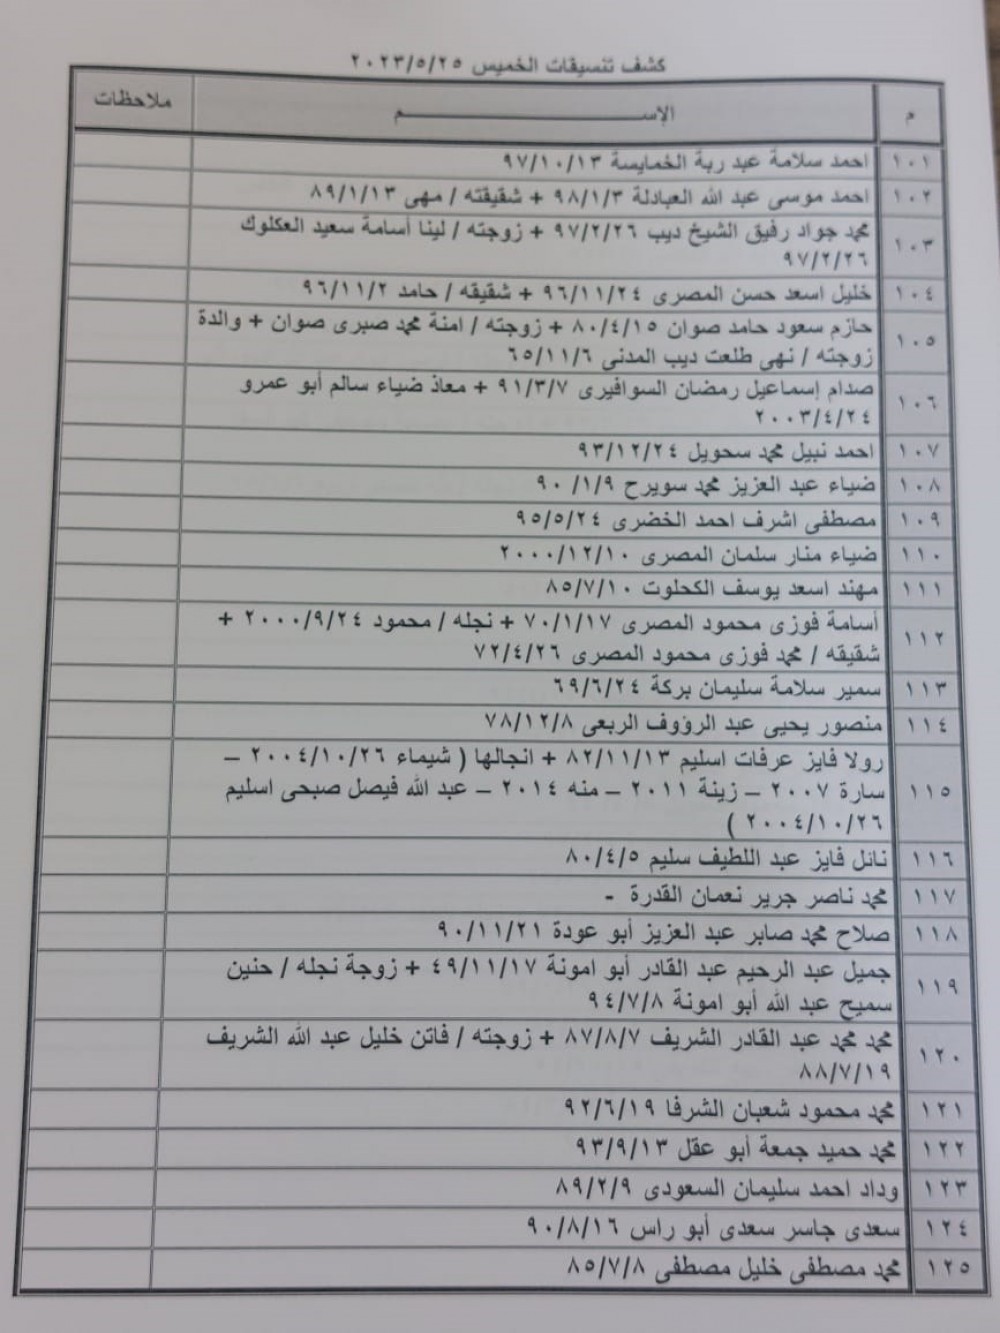 كشف تنسيقات الخميس ٢٠٢٣/٥/٢٥
م الإســـــــــــــم ملاحظات
١٠١ احمد سلامة عبد ربة الخمايسة ٩٧/١٠/١٣
١٠٢ احمد موسى عبد الله العبادلة ٩٨/١/٣ + شقيقته / مهى ٨٩/١/١٣
١٠٣ محمد جواد رفيق الشيخ ديب ٩٧/٢/٢٦ + زوجته / لينا أسامة سعيد العكلوك
٩٧/٢/٢٦
١٠٤ خليل اسعد حسن المصرى ٩٦/١١/٢٤ + شقيقه / حامد ٩٦/١١/٢
١٠٥ حازم سعود حامد صوان ٨٠/٤/١٥ + زوجته / امنة محمد صبرى صوان + والدة
زوجته / نهى طلعت ديب المدنى ٦٥/١١/٦
١٠٦ صدام إسماعيل رمضان السوافيرى ٩١/٣/٧ + معاذ ضياء سالم أبو عمرو
٢٠٠٣/٤/٢٤
١٠٧ احمد نبيل محمد سحويل ٩٣/١٢/٢٤
١٠٨ ضياء عبد العزيز محمد سويرح ٩٠/١/٩
١٠٩ مصطفى اشرف احمد الخضرى ٩٥/٥/٢٤
١١٠ ضياء منار سلمان المصرى ٢٠٠٠/١٢/١٠
١١١ مهند اسعد يوسف الكحلوت ٨٥/٧/١٠
١١٢ أسامة فوزى محمود المصرى ٧٠/١/١٧ + نجله / محمود ٢٠٠٠/٩/٢٤ +
شقيقه / محمد فوزى محمود المصرى ٧٢/٤/٢٦
١١٣ سمير سلامة سليمان بركة ٦٩/٦/٢٤
١١٤ منصور يحيى عبد الرؤوف الربعى ٧٨/١٢/٨
١١٥ رولا فايز عرفات اسليم ٨٢/١١/١٣ + انجالها ( شيماء ٢٠٠٤/١٠/٢٦ –
سارة ٢٠٠٧ – زينة ٢٠١١ – منه ٢٠١٤ – عبد الله فيصل صبحى اسليم
٢٠٠٤/١٠/٢٦ )
١١٦ نائل فايز عبد اللطيف سليم ٨٠/٤/٥
١١٧ محمد ناصر جرير نعمان القدرة -
١١٨ صلاح محمد صابر عبد العزيز أبو عودة ٩٠/١١/٢١
١١٩ جميل عبد الرحيم عبد القادر أبو امونة ٤٩/١١/١٧ + زوجة نجله / حنين
سميح عبد الله أبو امونة ٩٤/٧/٨
١٢٠ محمد محمد عبد القادر الشريف ٨٧/٨/٧ + زوجته / فاتن خليل عبد الله الشريف
٨٨/٧/١٩
١٢١ محمد محمود شعبان الشرفا ٩٢/٦/١٩
١٢٢ محمد حميد جمعة أبو عقل ٩٣/٩/١٣
١٢٣ وداد احمد سليمان السعودى ٨٩/٢/٩
١٢٤ سعدى جاسر سعدى أبو راس ٩٠/٨/١٦
١٢٥ محمد مصطفى خليل مصطفى ٨٥/٧/٨